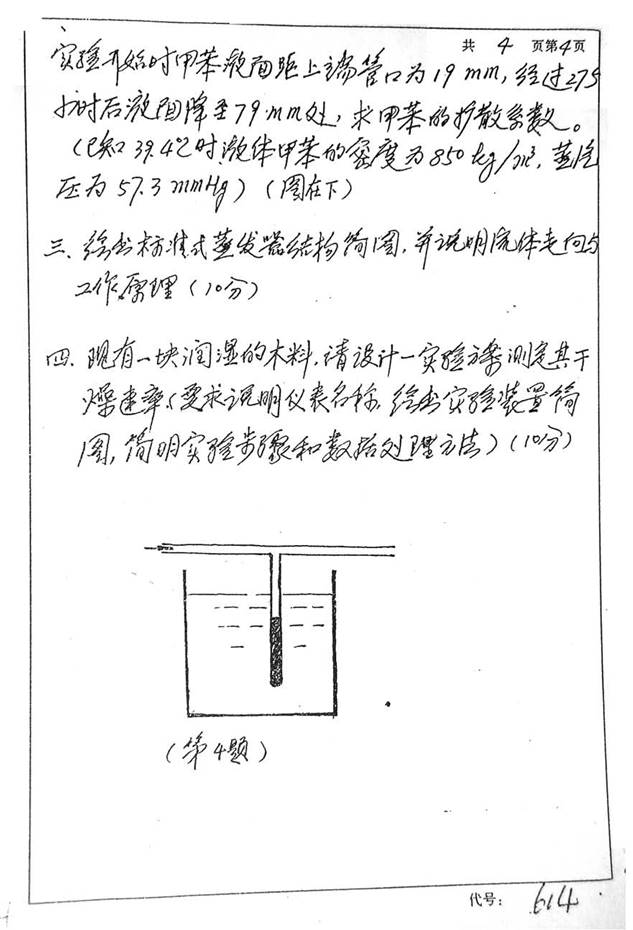 共 4 页第4页
实验开始时甲苯液面距上端管口为19mm,经过275
小时后液面降至79mm处,求甲苯的扩散系数。
(已知39.4℃时液体甲苯的密度为850kg/m³,蒸汽
压为57.3mmHg)(图在下)
三、绘出标准式蒸发器结构简图,并说明流体走向与
工作原理(10分)
四、现有一块润湿的木料,请设计一实验方案测定其干
燥速率(要求说明仪表名称,绘出实验装置简
图,简明实验步骤和数据处理方法)(10分)
(第4题)
代号: 614